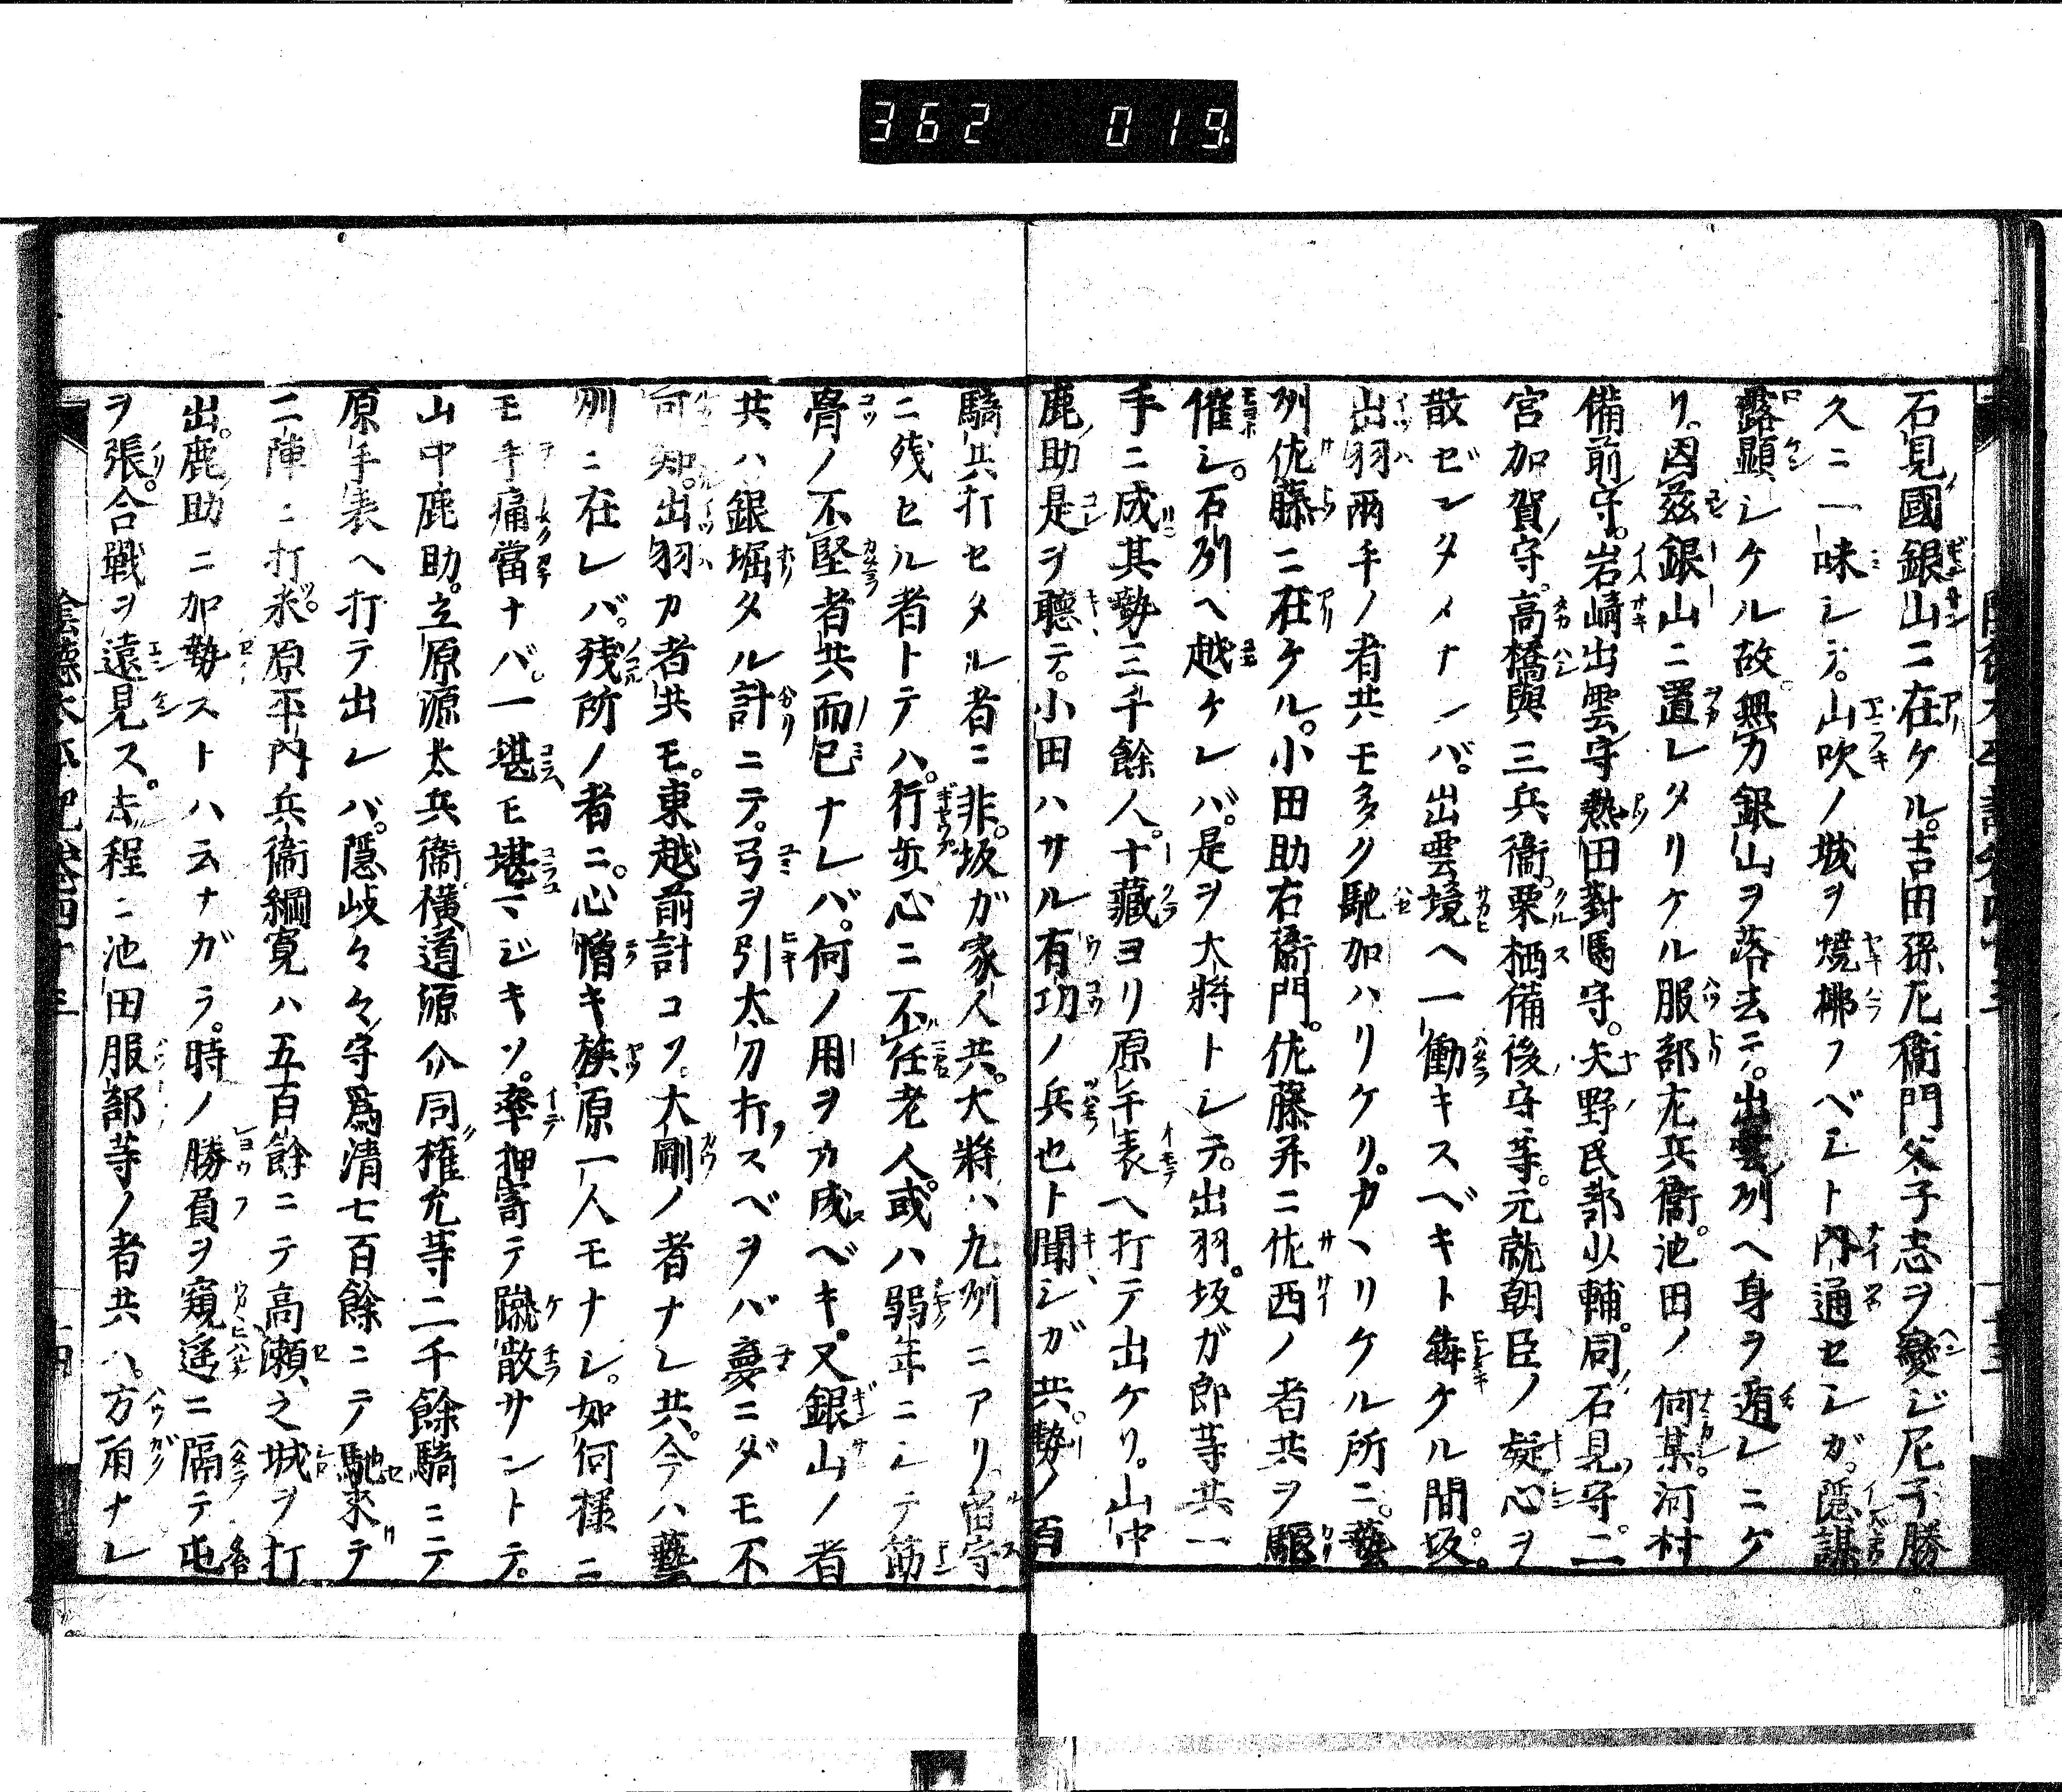 362 019
石見國銀山ニ在ケル。吉田孫左衞門父子志ヲ變ジ尼子勝
久ニ一味シテ。山吹ノ城ヲ燒拂フベシト內通セシガ。隱謀
露顯シケル故。無力銀山ヲ落去テ。出雲州ヘ身ヲ遁レニケ
リ。因茲銀山ニ置レタリケル服部左兵衞。池田ノ何某。河村
備前守。岩﨑出雲守熱田對馬守。矢野民部少輔。同石見守。二
宮加賀守。高橋與三兵衞。栗栖備後守等。元就朝臣ノ疑心ヲ
散ゼンタメナンバ。出雲境ヘ一働キスベキト犇ケル間坂。
出羽兩手ノ者共モ多ク馳加ハリケリ。カヽリケル所ニ。藝
州佐藤ニ在ケル。小田助右衞門。佐藤并ニ佐西ノ者共ヲ驅
催シ。石州ヘ越ケレバ。是ヲ大將トシテ。出羽。坂ガ郎等共一
手ニ成其勢三千餘人。十藏ヨリ原手表ヘ打テ出ケリ。山中
鹿助是ヲ聽テ。小田ハサル有功ノ兵也ト聞シガ共。勢ノ百
騎共打セタル者ニ非。坂ガ家人共。大將ハ九州ニアリ。留守
ニ殘セル者トテハ。行步心ニ不任老人。或ハ弱年ニシテ筋
骨ノ不堅者共而已ナレバ。何ノ用ヲカ成ベキ。又銀山ノ者
共ハ銀堀タル計ニテ。弓ヲ引太刀打スベヲバ夢ニダモ不
可知。出羽カ者共モ。東越前計コソ。大剛ノ者ナレ共。今ハ藝
州ニ在レバ。殘所ノ者ニ。心憎キ族原一人モナシ。如何樣ニ
モ手痛當ナバ。一堪モ堪マジキソ。率押寄テ蹴散サントテ。
山中鹿助。立原源太兵衞橫道源介同權允等二千餘騎ニテ
原手表ヘ打テ出レバ。隱岐々々守爲淸七百餘ニテ馳來テ
二陣ニ打ツ。米原平內兵衞綱寬ハ五百餘ニテ高瀨之城ヲ打
出。鹿助ニ加勢ストハ云ナガラ。時ノ勝負ヲ窺遙ニ隔テ屯
ヲ張。合戰ヲ遠見ス。去程ニ池田服部等ノ者共ハ。方角ナレ